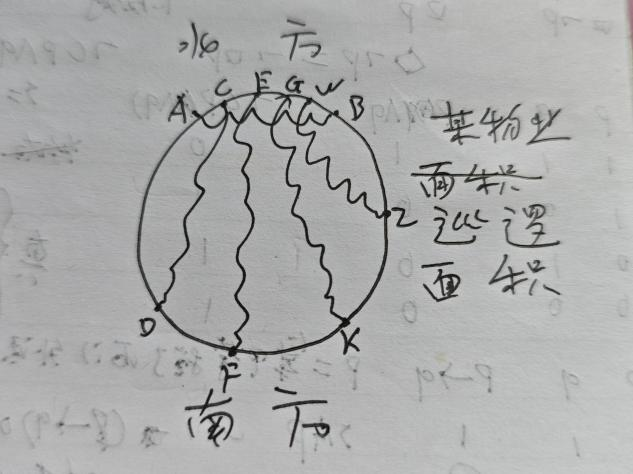 北 方
A C E G W B
某物之
面积
Z 巡逻
面积
D
F K
南 方